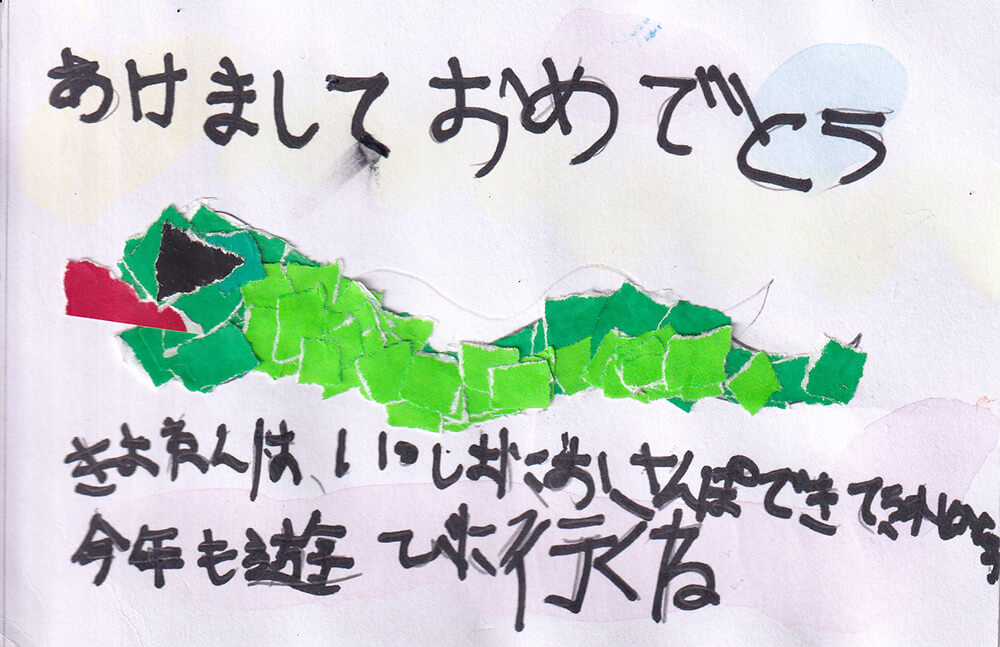 あけましておめでとう
きょねんは、いっしょにおさんぽできて
今年も遊びに行くね